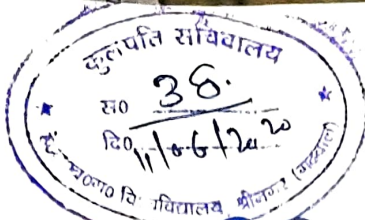 कुलपति सचिवालय
स० 38.
दि० 11/06/2020
हे० न० ब० ग० वि० विद्यालय, श्रीनगर (गढ़वाल)